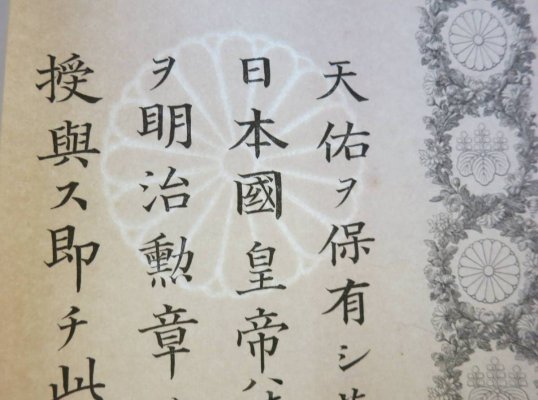 天佑ヲ保有シ
日本國皇帝ハ
ヲ明治勲章
授與ス即チ此